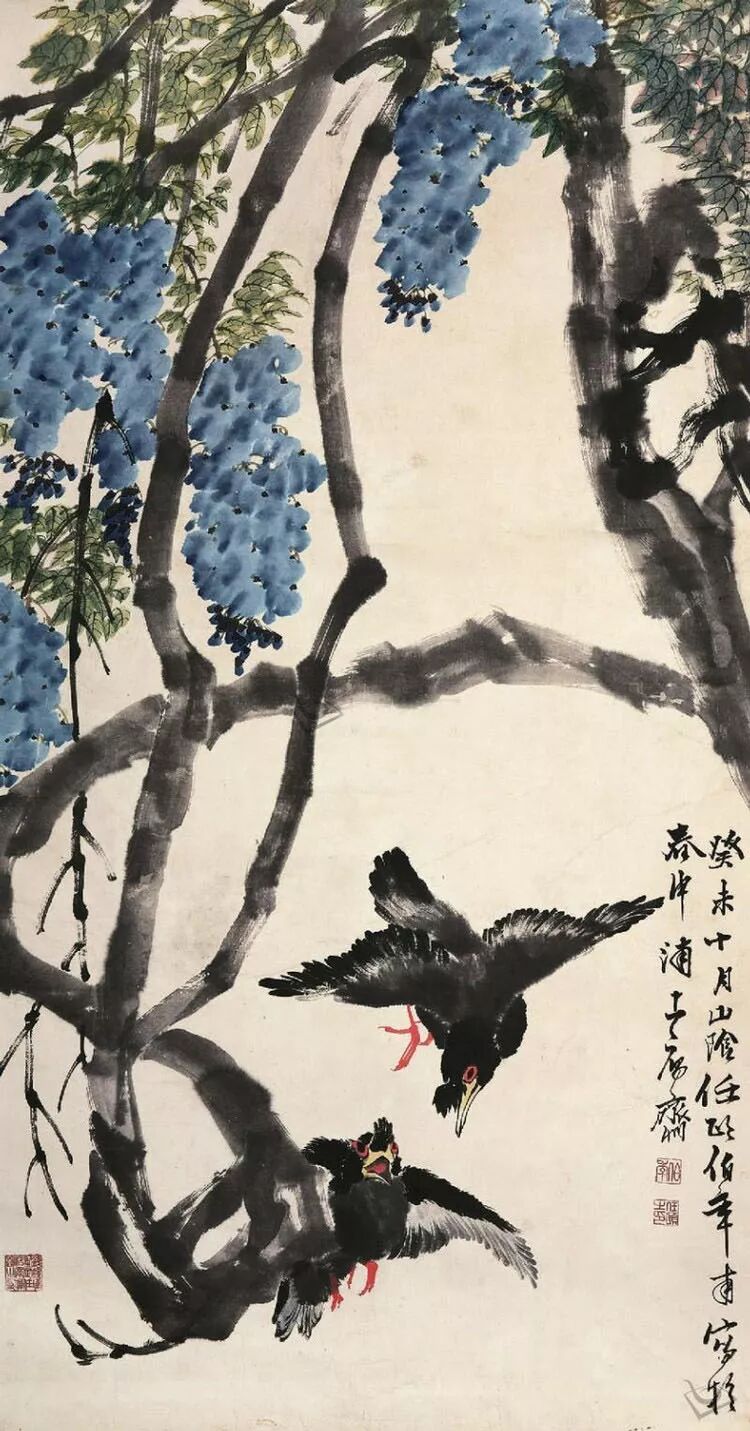 癸未十月山陰任頤伯年甫寫於
春申浦上寓齋